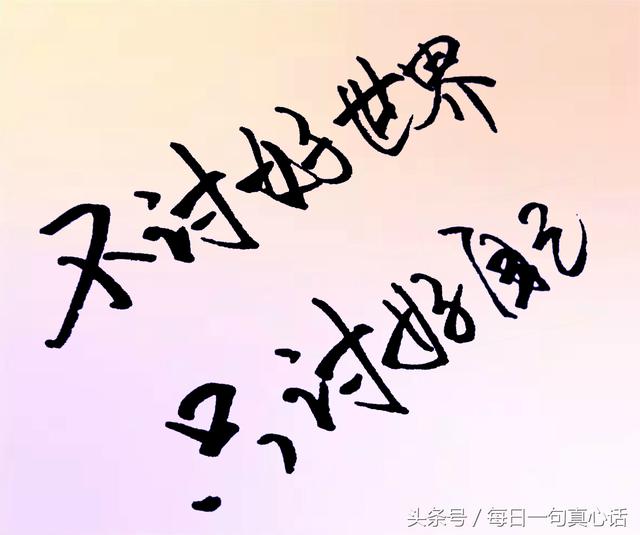 不讨好世界
只讨好自己
头条号 / 每日一句真心话